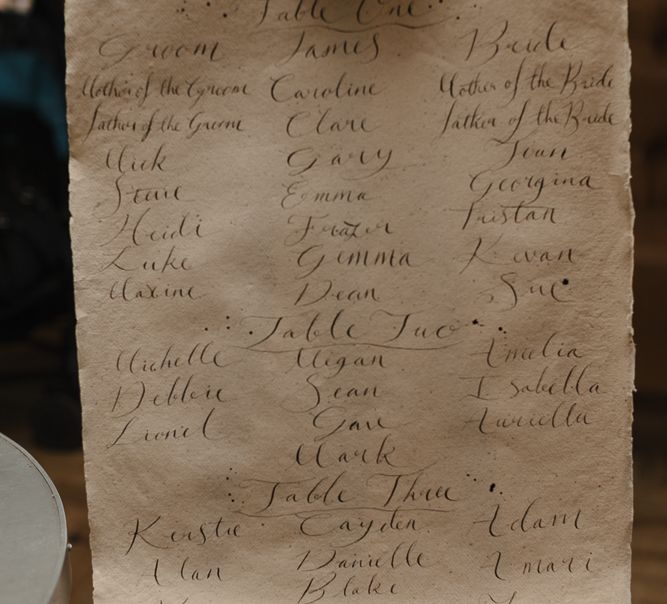 Table One
Groom James Bride
Mother of the Groom Caroline Mother of the Bride
Father of the Groom Clare Father of the Bride
Mick Gary Joan
Steve Emma Georgina
Heidi Frazer Tristan
Luke Gemma Kevan
Maxine Dean Sue
Table Two
Michelle Megan Amelia
Debbie Sean Isabella
Lionel Auriella
Mark
Table Three
Kerstie Cayden Adam
Alan Danielle Amari
Blake